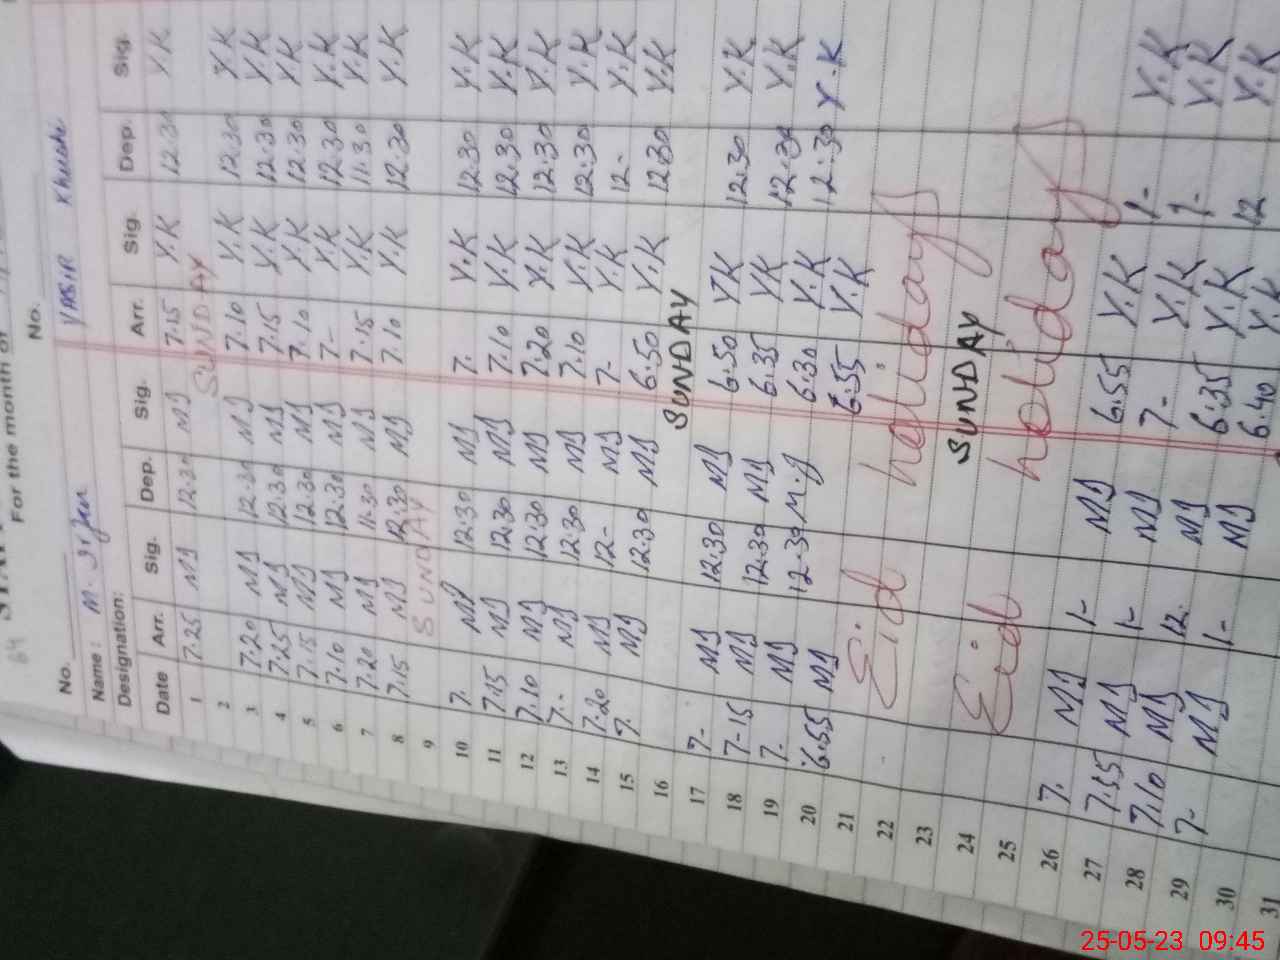 For the month of
No. No.
Name: M. Irfan YASIR Khushi
Designation:
Date Arr. Sig. Dep. Sig. Arr. Sig. Dep. Sig.
1 7.25 MJ 12.30 MJ 7.15 Y.K 12.30 Y.K
2 SUNDAY
3 7.20 MJ 12.30 MJ 7.10 Y.K 12.30 Y.K
4 7.25 MJ 12.30 MJ 7.15 Y.K 12.30 Y.K
5 7.15 MJ 12.30 MJ 7.10 Y.K 12.30 Y.K
6 7.10 MJ 12.30 MJ 7- Y.K 12.30 Y.K
7 7.20 MJ 11.30 MJ 7.15 Y.K 11.30 Y.K
8 7.15 MJ 12.30 MJ 7.10 Y.K 12.30 Y.K
9 SUNDAY
10 7. MJ 12.30 MJ 7. Y.K 12.30 Y.K
11 7.15 MJ 12.30 MJ 7.10 Y.K 12.30 Y.K
12 7.10 MJ 12.30 MJ 7.20 Y.K 12.30 Y.K
13 7.- MJ 12.30 MJ 7.10 Y.K 12.30 Y.K
14 7.20 MJ 12- MJ 7- Y.K 12- Y.K
15 7. MJ 12.30 MJ 6.50 Y.K 12.30 Y.K
16 SUNDAY
17 7- MJ 12.30 MJ 6.50 YK 12.30 Y.K
18 7-15 MJ 12.30 MJ 6.35 YK 12.30 Y.K
19 7. MJ 12-30 M.J 6.30 Y.K 12:30 Y.K
20 6.55 MJ 6.55 Y.K
21
22 Eid holidays
23 SUNDAY
24 Eid holidays
25
26 7. MJ 1- MJ 6.55 Y.K 1- Y.K
27 7.55 MJ 1- MJ 7- Y.K 1- Y.K
28 7.10 MJ 12. MJ 6.35 Y.K 12 Y.K
29 7- MJ 1- MJ 6.40 Y.K
30
31
25-05-23 09:45